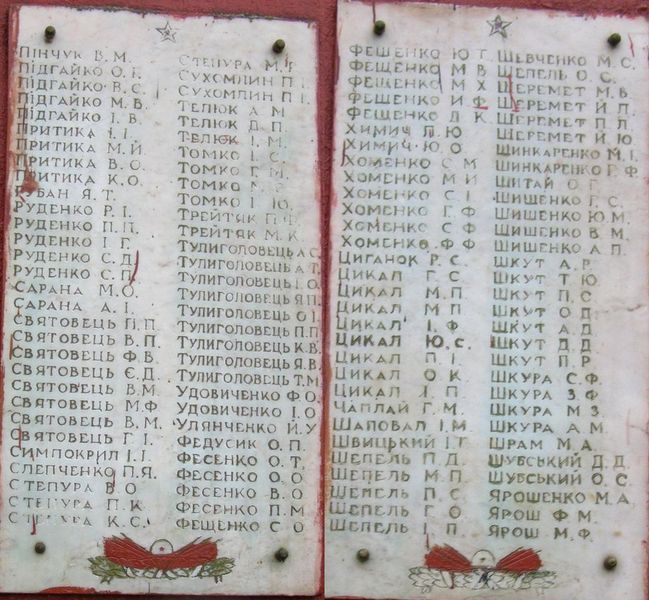 ПІНЧУК В. М.
ПІДГАЙКО О. І.
ПІДГАЙКО В. С.
ПІДГАЙКО М. В.
ПІДГАЙКО І. В.
ПРИТИКА І. І.
ПРИТИКА М. Й.
ПРИТИКА В. О.
ПРИТИКА К. О.
РУБАН Я. Т.
РУДЕНКО Р. І.
РУДЕНКО П. П.
РУДЕНКО І. Г.
РУДЕНКО С. Д.
РУДЕНКО С. П.
САРАНА М. О.
САРАНА А. І.
СВЯТОВЕЦЬ П. П.
СВЯТОВЕЦЬ В. П.
СВЯТОВЕЦЬ Ф. В.
СВЯТОВЕЦЬ Є. Д.
СВЯТОВЕЦЬ В. М.
СВЯТОВЕЦЬ М. Ф.
СВЯТОВЕЦЬ В. М.
СВЯТОВЕЦЬ Г. І.
СИМПОКРИЛ І. І.
СЛЕПЧЕНКО П. Я.
СТЕПУРА В. О.
СТЕПУРА П. К.
СТЕПУРА К. С.
СТЕПУРА М.
СУХОМЛИН П.
СУХОМЛИН П.
ТЕЛЮК А. М.
ТЕЛЮК Д. П.
ТЕЛЮК І. М.
ТОМКО І. С.
ТОМКО Г. М.
ТОМКО М.
ТОМКО І. Ю.
ТРЕЙТЯК П.
ТРЕЙТЯК М. К.
ТУЛИГОЛОВЕЦЬ А. С.
ТУЛИГОЛОВЕЦЬ А. Т.
ТУЛИГОЛОВЕЦЬ І. О.
ТУЛИГОЛОВЕЦЬ Я. П.
ТУЛИГОЛОВЕЦЬ О. І.
ТУЛИГОЛОВЕЦЬ П. П.
ТУЛИГОЛОВЕЦЬ К. В.
ТУЛИГОЛОВЕЦЬ Я. В.
ТУЛИГОЛОВЕЦЬ Т. М.
УДОВИЧЕНКО Ф. О.
УДОВИЧЕНКО І. О.
УЛЯНЧЕНКО Й. У.
ФЕДУСИК О. П.
ФЕСЕНКО О. Т.
ФЕСЕНКО О. О.
ФЕСЕНКО В. О.
ФЕСЕНКО П. М.
ФЕЩЕНКО С. О.
ФЕЩЕНКО Ю. Т.
ФЕЩЕНКО М. В.
ФЕЩЕНКО М. Х.
ФЕЩЕНКО И. Ф.
ФЕЩЕНКО Л. К.
ХИМИЧ Л. Ю.
ХИМИЧ Ю. О.
ХОМЕНКО С. М.
ХОМЕНКО М. И.
ХОМЕНКО С. І.
ХОМЕНКО Г. Ф.
ХОМЕНКО С. Ф.
ХОМЕНКО Ф. Ф.
ЦИГАНОК Р. С.
ЦИКАЛ Г. С.
ЦИКАЛ М. П.
ЦИКАЛ І. Ф.
ЦИКАЛ Ю. С.
ЦИКАЛ П. І.
ЦИКАЛ О. К.
ЦИКАЛ П.
ЧАПЛАЙ Г. М.
ШАПОВАЛ І. М.
ШВИЦЬКИЙ І. Г.
ШЕПЕЛЬ П. Д.
ШЕПЕЛЬ М. П.
ШЕПЕЛЬ П. С.
ШЕПЕЛЬ Г. О.
ШЕПЕЛЬ І. П.
ШЕВЧЕНКО М. С.
ШЕПЕЛЬ О. С.
ШЕРЕМЕТ М. В.
ШЕРЕМЕТ Й. П.
ШЕРЕМЕТ П. Л.
ШЕРЕМЕТ Й. Ю.
ШИНКАРЕНКО М. І.
ШИНКАРЕНКО Г. Ф.
ШИТАЙ О. Г.
ШИШЕНКО Г. С.
ШИШЕНКО Ю. М.
ШИШЕНКО В. М.
ШИШЕНКО А. П.
ШКУТ А. Р.
ШКУТ Т. Ю.
ШКУТ П. С.
ШКУТ О. Д.
ШКУТ А. Д.
ШКУТ Д. Д.
ШКУТ П. Р.
ШКУРА С. Ф.
ШКУРА З. Ф.
ШКУРА М. З.
ШКУРА А. М.
ШРАМ М. А.
ШУБСЬКИЙ Д. Д.
ШУБСЬКИЙ О. С.
ЯРОШЕНКО М. А.
ЯРОШ Ф. М.
ЯРОШ М. Ф.